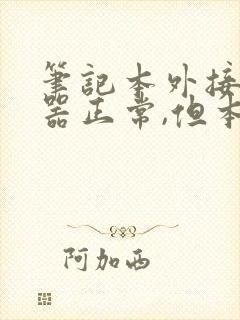 筆記本外接
器正常,但本
阿加西